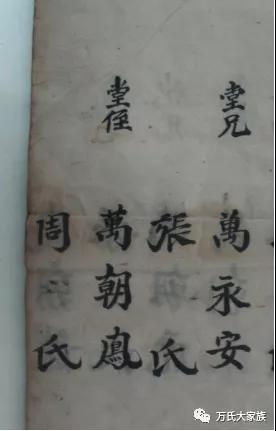 堂兄
萬永安
張氏
堂侄
萬朝鳳
周氏
万氏大家族